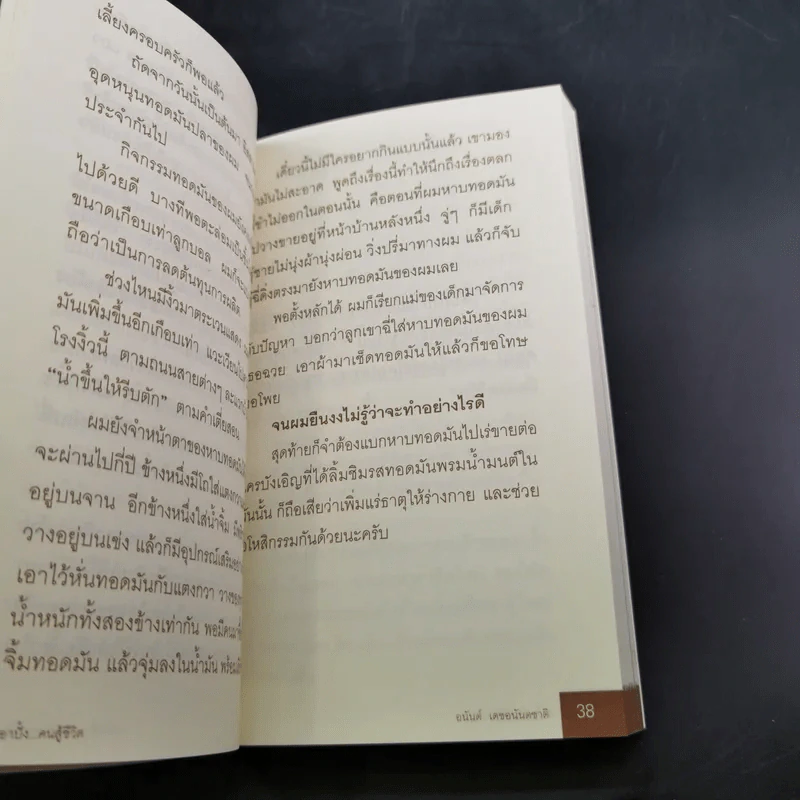 เลี้ยงครอบครัวก็พอแล้ว
ถัดจากวันนั้นเป็นต้นมา
อุดหนุนทอดมันปลาของผม
ประจำกันไป
กิจกรรมทอดมันของผม
ไปด้วยดี บางทีพอตะล่อมเป็น
ขนาดเกือบเท่าลูกบอล ผมก็
ถือว่าเป็นการลดต้นทุนการผลิต
ช่วงไหนมีงิ้วมาตระเวนแสดง
มันเพิ่มขึ้นอีกเกือบเท่า แวะเวียน
โรงงิ้วนี้ ตามถนนสายต่างๆ
“น้ำขึ้นให้รีบตัก” ตามคำเตี่ยสอน
ผมยังจำหน้าตาของหาบทอดมัน
จะผ่านไปกี่ปี ข้างหนึ่งมีโถใส่แตงกวา
อยู่บนจาน อีกข้างหนึ่งใส่น้ำจิ้ม
วางอยู่บนเข่ง แล้วก็มีอุปกรณ์เสริม
เอาไว้หั่นทอดมันกับแตงกวา
น้ำหนักทั้งสองข้างเท่ากัน พอมีคน
จิ้มทอดมัน แล้วจุ่มลงในน้ำมัน
อาบั๊ง...คนสู้ชีวิต
เดี๋ยวนี้ไม่มีใครอยากกินแบบนั้นแล้ว เขามอง
มันไม่สะอาด พูดถึงเรื่องนี้ทำให้นึกถึงเรื่องตลก
ขำไม่ออกในตอนนั้น คือตอนที่ผมหาบทอดมัน
ปวางขายอยู่ที่หน้าบ้านหลังหนึ่ง จู่ๆ ก็มีเด็ก
ชายไม่นุ่งผ้านุ่งผ่อน วิ่งปรี่มาทางผม แล้วก็จับ
ฉี่ดิ่งตรงมายังหาบทอดมันของผมเลย
พอตั้งหลักได้ ผมก็เรียกแม่ของเด็กมาจัดการ
ับปัญหา บอกว่าลูกเขาฉี่ใส่หาบทอดมันของผม
ธอฉวย เอาผ้ามาเช็ดทอดมันให้แล้วก็ขอโทษ
อโพย
จนผมยืนงงไม่รู้ว่าจะทำอย่างไรดี
สุดท้ายก็จำต้องแบกหาบทอดมันไปเร่ขายต่อ
ครบังเอิญที่ได้ลิ้มชิมรสทอดมันพรมน้ำมนต์ใน
วันนั้น ก็ถือเสียว่าเพิ่มแร่ธาตุให้ร่างกาย และช่วย
โหสิกรรมกันด้วยนะครับ
อนันต์...เดชอนันตชาติ 38